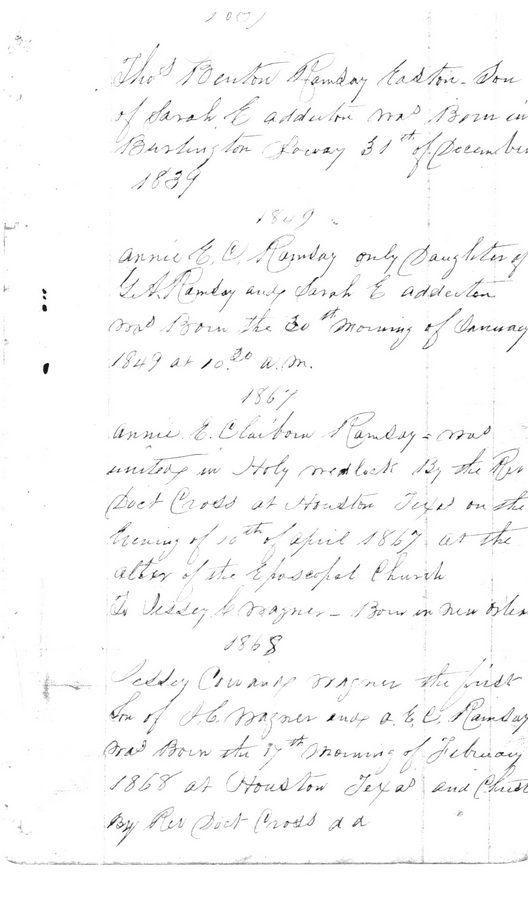 Thos Benton Ramsay Easton - Son
of Sarah E Adderton was Born in
Burlington Ioway 31th of December
1839
1849
Annie E. C. Ramsay only Daughter of
G. A. Ramsay and Sarah E Adderton
was Born the 30th morning of January
1849 at 10.30 a.m.
1867
Annie E. Claiborn Ramsay - was
united in Holy wedlock By the Rev
Doct Cross at Houston Texas on the
Evening of 10th of April 1867 at the
Alter of the Epescopal Church
To Jessey C Wagner - Born in New Orlea
1868
Jessey Cowand Wagner the first
Son of J. C. Wagner and A. E. C. Ramsay
was Born the 17th morning of February
1868 at Houston Texas and Christ
By Rev Doct Cross d d